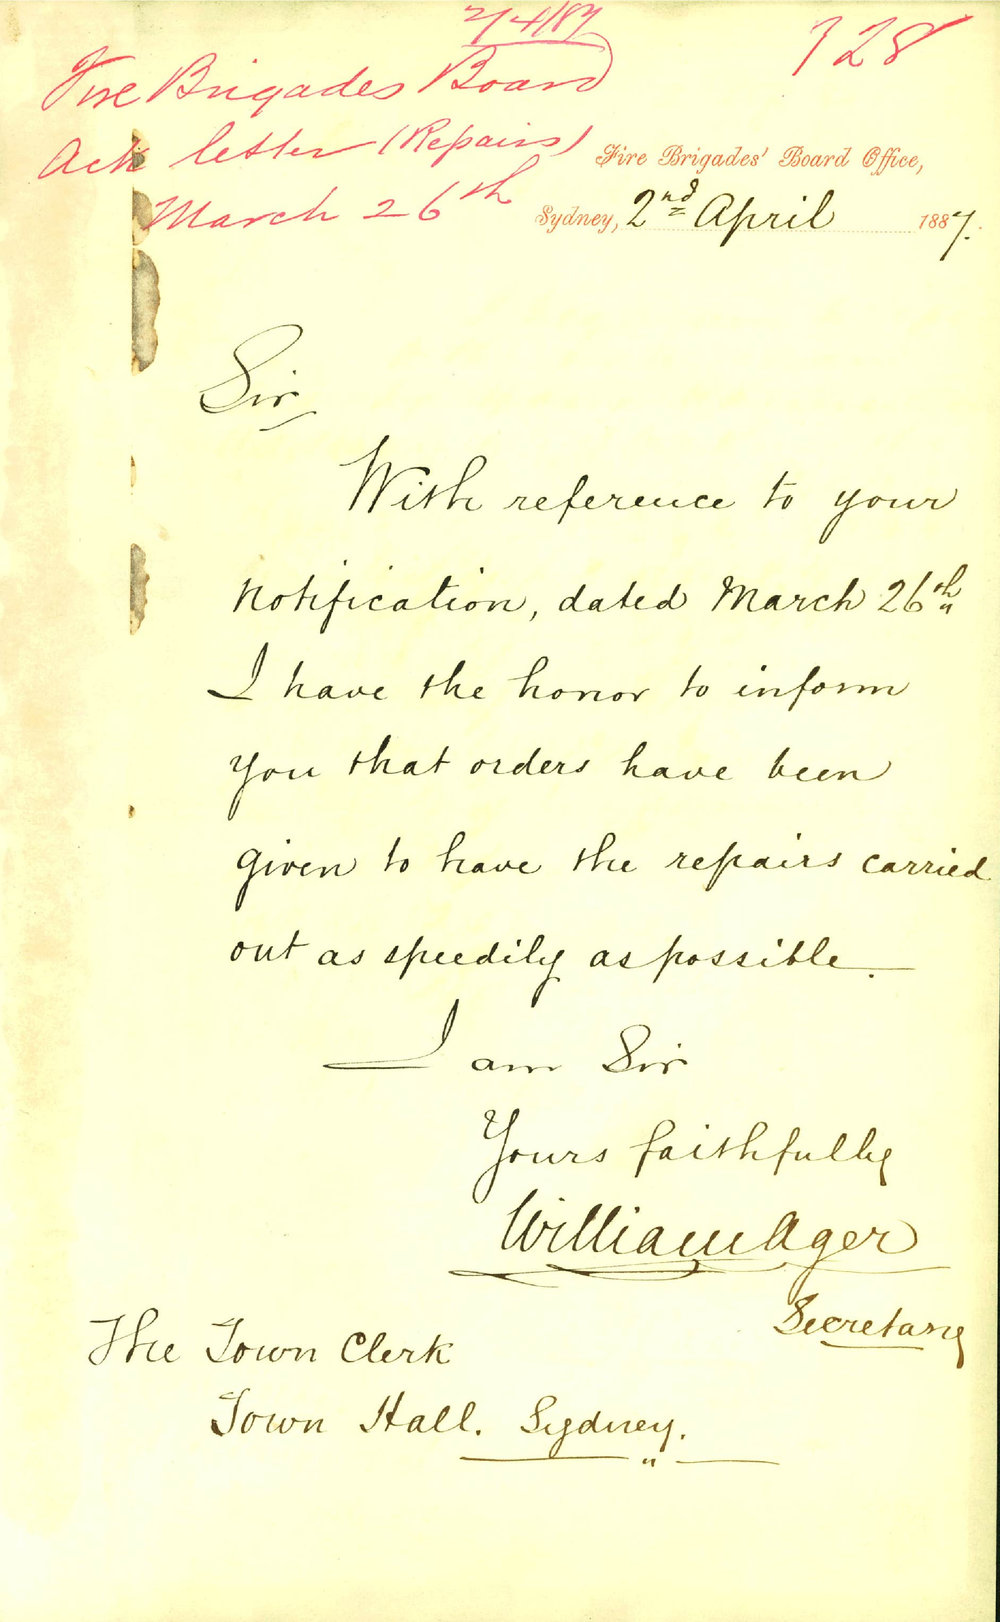 2/4/87
728
Fire Brigades Board
Ack letter (Repairs)
March 26th
Fire Brigades' Board Office,
Sydney, 2nd April 1887.
Sir,
With reference to your
notification, dated March 26th
I have the honor to inform
you that orders have been
given to have the repairs carried
out as speedily as possible.
I am Sir
Yours faithfully
William Ager
Secretary
The Town Clerk
Town Hall. Sydney.